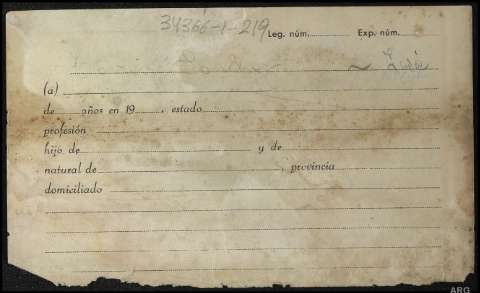 34366-1-219
Leg. núm. Exp. núm.
(a)
de años en 19 , estado
profesión
hijo de y de
natural de , provincia
domiciliado
ARG